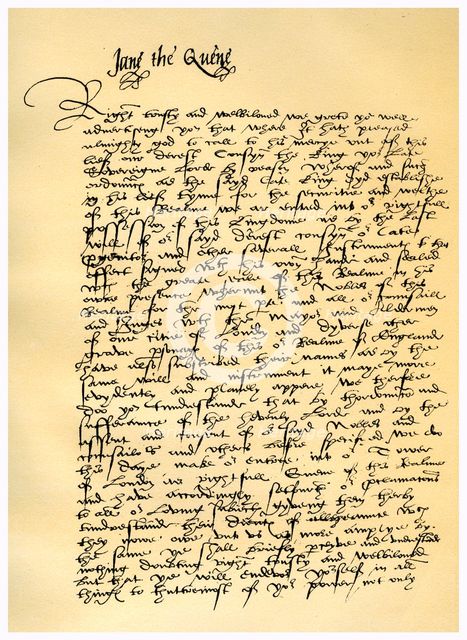 Jane the Quene
Right trusty and welbiloved we grete you well
advertesing you that where It hath pleased
almighty god to call to his mercye out of this
lief our derest Cousyn the King your late
Sovereigne lorde by reason wherof and such
ordenances as the sayd late King dyd establishe
in his lief tyme for the securitie and wealthe
of this Realme we are entred into our rightfull
possession of this kingdome as by the last
will of our sayd derest cousyn our late
progenitor and other severall Instruments to that
effect signed with his own hande and sealed
with the greate seale of this Realme in his
owne presence wherunto the Nobles of this
Realme for the most parte and all our counsaill
and Judges with the Mayor and Aldermen
of our citie of London and dyverse other
grave personages of this our Realme of England
have also subscribed their names as by the
same will and instrument it maye more
evydently and playnely appere we therfore
doo you tunderstande that by thordenance and
sufferaunce of the hevenly Lorde and by the
assent and consent of our sayd Nobles and
counsellors and others before specified we do
this daye make our entree into our Tower
of London as rightfull Quene of this Realme
and have accordingly setfurth our proclamations
to all our loving subjects gyveng them therby
tunderstande their duetie of allegeaunce which
they nowe owe unto us as more amplye by
the same ye shall briefly perceyve and understand
nothing doubting right trusty and welbiloved
but that ye will endevor yourself in all
things to thuttermost of your power not only